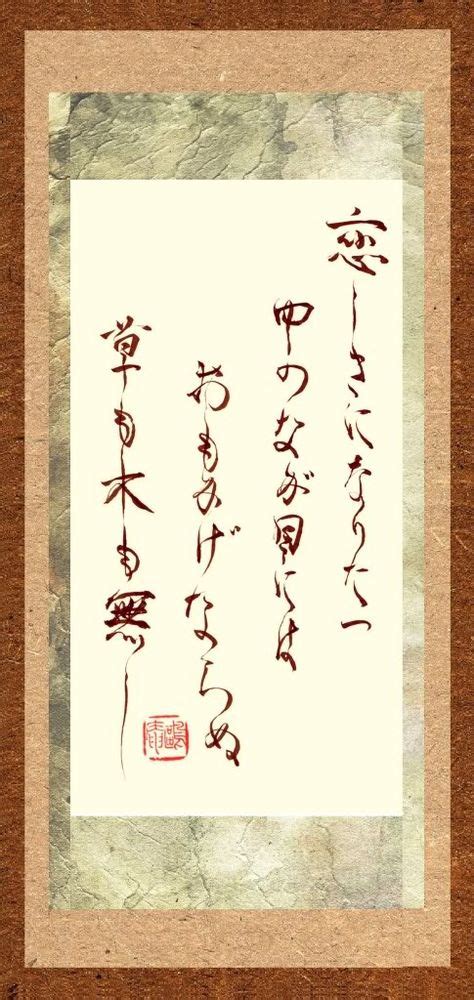 恋しさになりたつ
中のなが目には
おもかげならぬ
草も木も無し